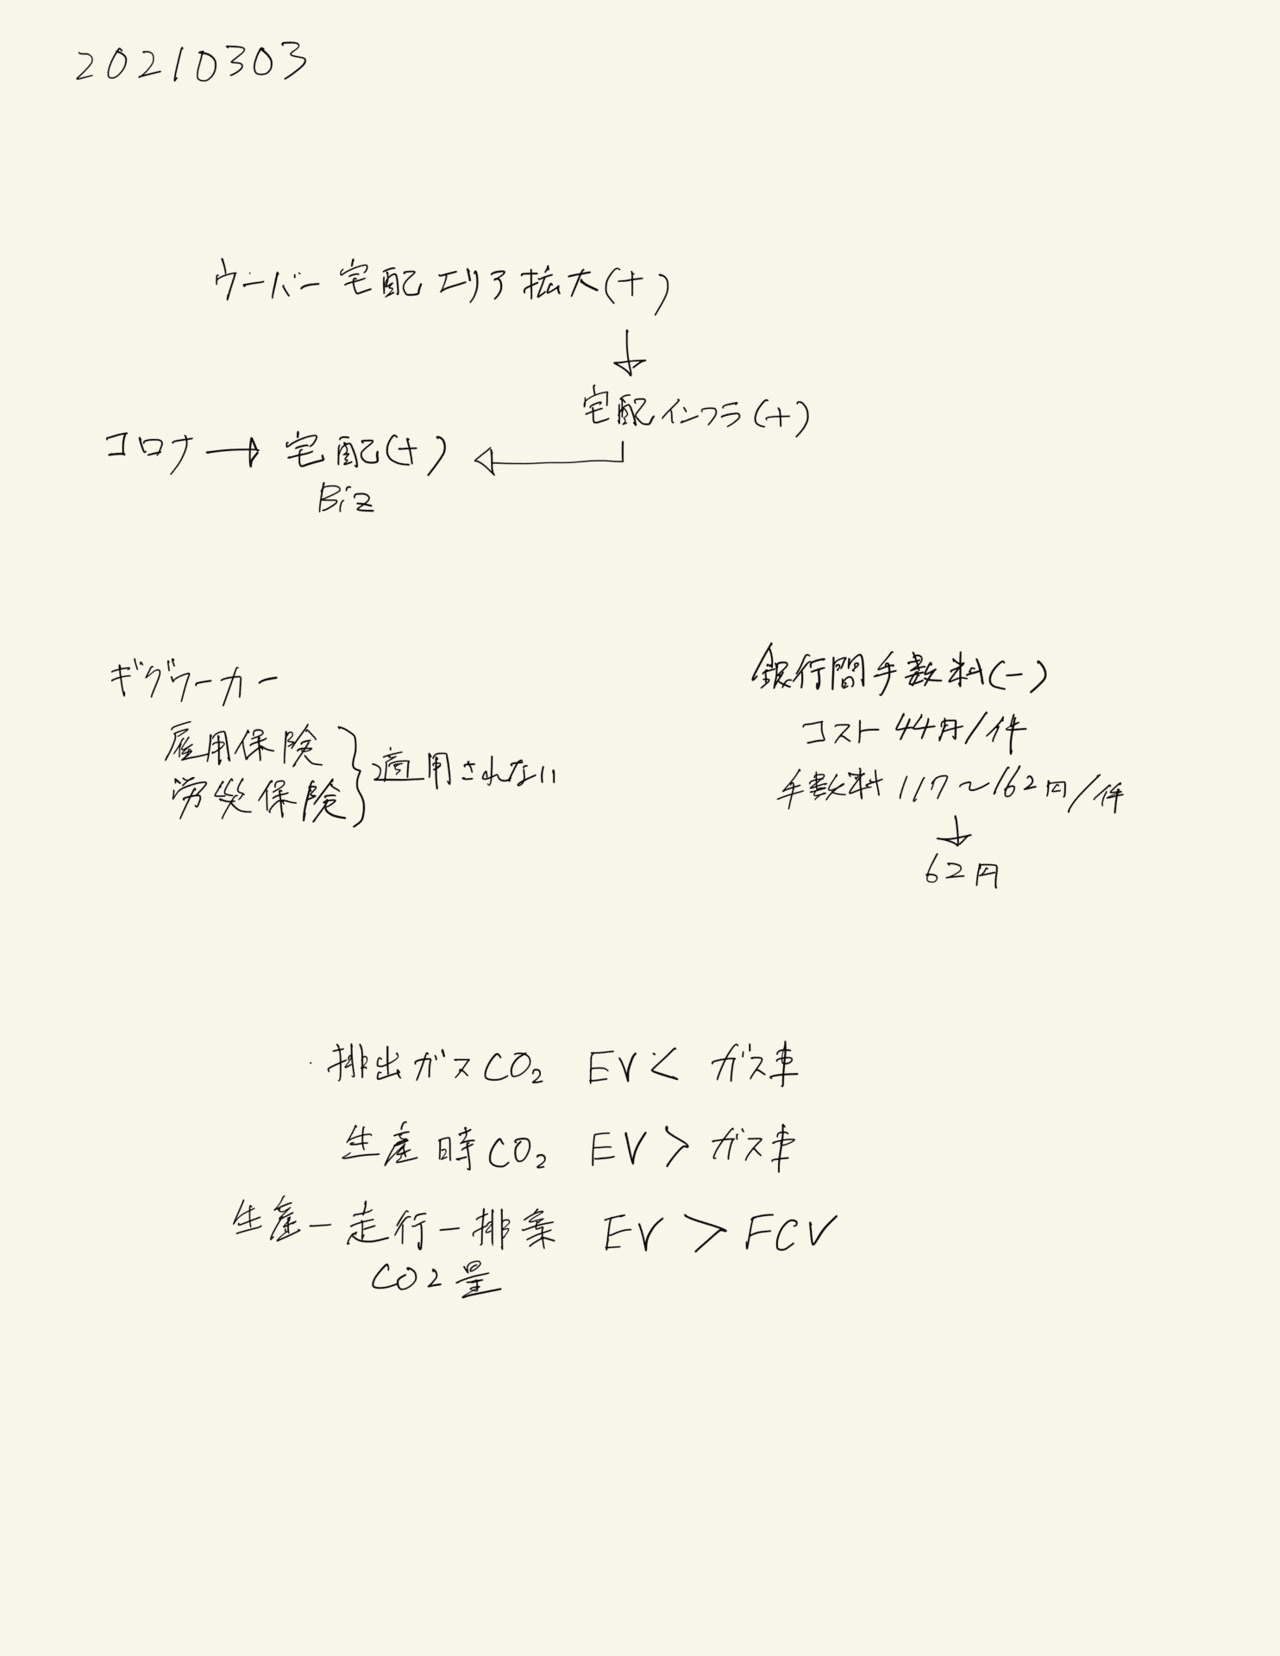 20210303
ウーバー宅配エリア拡大(+)
↓
宅配インフラ(+)
コロナ → 宅配(+) ←
Biz
ギグワーカー
雇用保険
労災保険
} 適用されない
銀行間手数料(-)
コスト 44円/件
手数料 117〜162円/件
↓
62円
排出ガスCO₂ EV < ガス車
生産時CO₂ EV > ガス車
生産-走行-排棄 EV > FCV
CO2量